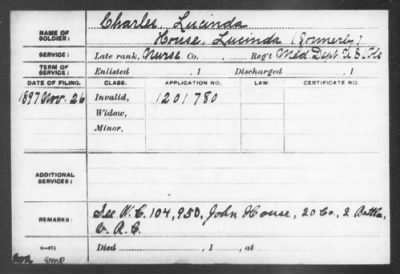 Charles, Lucinda
NAME OF SOLDIER: House, Lucinda (formerly)
SERVICE: Late rank, Nurse Co. , Reg't Med Dept U.S. Vols
TERM OF SERVICE: Enlisted , 1 Discharged , 1
DATE OF FILING. CLASS. APPLICATION NO. LAW. CERTIFICATE NO.
1897 Nov. 26 Invalid, 1201780
Widow,
Minor,
ADDITIONAL SERVICES:
REMARKS: See W.C. 104,950, John House, 20 Co., 2 Battln.
V. R. C.
Died , 1 , at